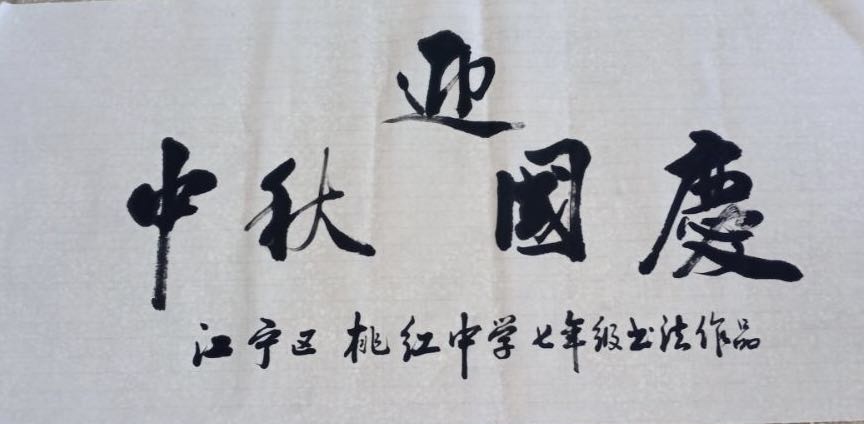 迎
中秋 國慶
江宁区 桃红中学七年级书法作品